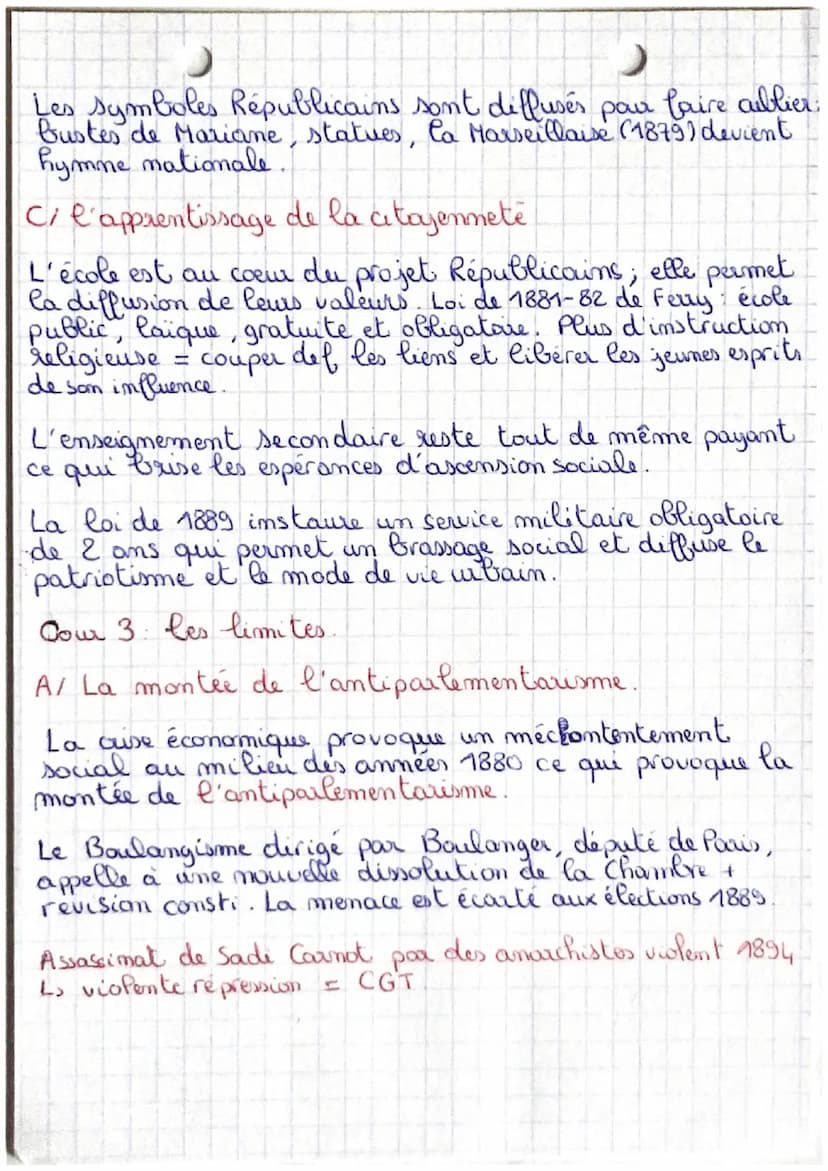 Les symboles Républicains sont diffusés pour faire oublier:
bustes de Mariane, statues, la Marseillaise (1879) devient
hymne nationale.
C/ l'apprentissage de la citoyenneté
L'école est au coeur du projet Républicains ; elle permet
la diffusion de leurs valeurs. Loi de 1881-82 de Ferry : école
public, laïque, gratuite et obligatoire. Plus d'instruction
religieuse = couper def les liens et libérer les jeunes esprits
de son influence.
L'enseignement secondaire reste tout de même payant
ce qui brise les espérances d'ascension sociale.
La loi de 1889 instaure un service militaire obligatoire
de 2 ans qui permet un brassage social et diffuse le
patriotisme et le mode de vie urbain.
Cour 3 : les limites.
A/ La montée de l'antiparlementarisme.
La crise économique provoque un mécontentement
social au milieu des années 1880 ce qui provoque la
montée de l'antiparlementarisme.
Le Boulangisme dirigé par Boulanger, député de Paris,
appelle à une nouvelle dissolution de la Chambre +
révision consti. La menace est écarté aux élections 1889.
Assassinat de Sadi Carnot par des anarchistes violent 1894
↳ violente répression = CGT